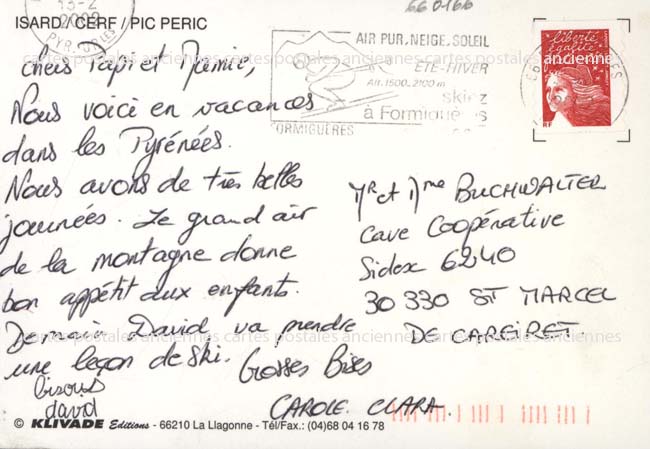 660166
13-2
2002
PYR. ORLES
ISARD / CERF / PIC PERIC
AIR PUR, NEIGE, SOLEIL
ETE-HIVER
Alt. 1500-2100 m
skiez
à Formiguères
FORMIGUÈRES
liberté
égalité
RF
cartes postales anciennes cartes postales anciennes cartes postales anciennes
Chers Papi et Mamie,
Nous voici en vacances
dans les Pyrénées.
Nous avons de très belles
journées. Le grand air
de la montagne donne
bon appétit aux enfants.
Demain David va prendre
une leçon de ski.
Grosses Bises
bisous
david
CAROLE. CLARA.
Mr et Mme BUCHWALTER
Cave Coopérative
Sidex 6240
30 330 ST MARCEL
DE CAREIRET
cartes postales anciennes cartes postales anciennes cartes postales anciennes
© KLIVADE Editions - 66210 La Llagonne - Tél/Fax.: (04)68 04 16 78